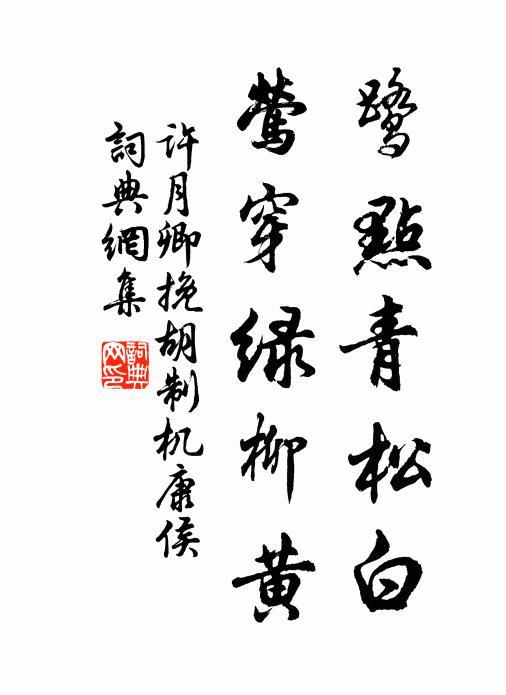 鹭點青松白
莺穿绿柳黄
许月卿挽胡制机康侯
詞典網集
詞典网印